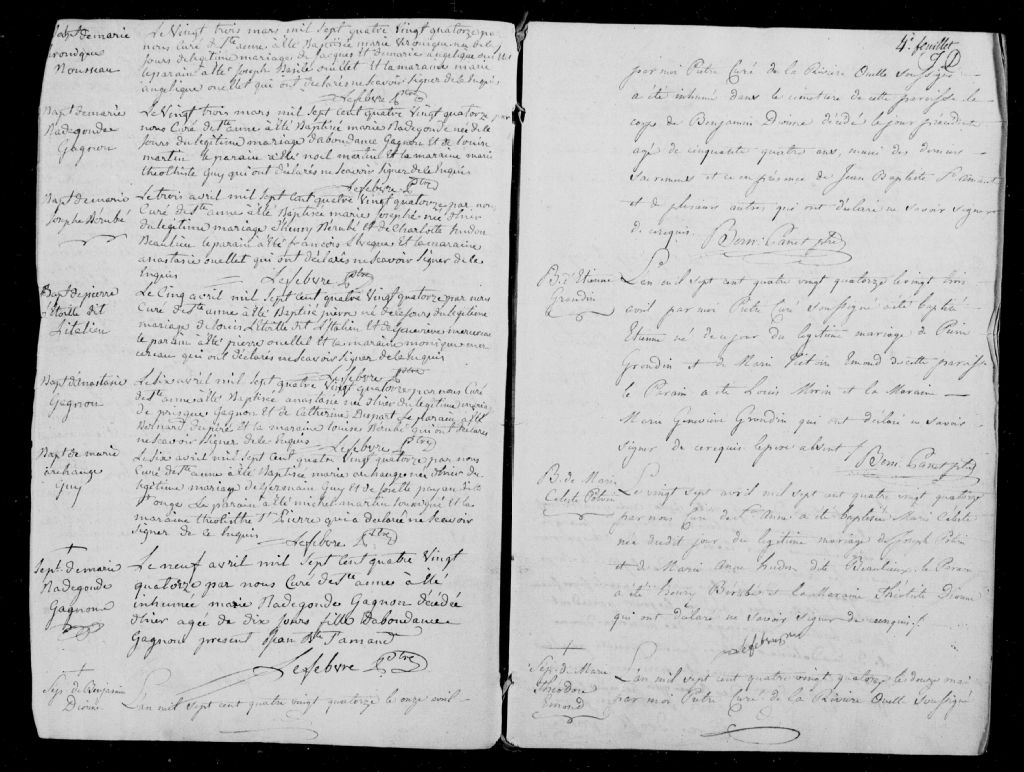 Bapt de marie
veronique
Rousseau
Le Vingt trois mars mil sept cent quatre Vingt quatorze par
nous Curé de Ste anne a été Baptisée marie Veronique née del
jours du legitime mariage de jacques et de marie angelique ouellet
le parain a été joseph Basile ouellet et la maraine marie
angelique ouellet qui ont déclarés ne Scavoir Signer de ce Enquis
Lefebvre Ptre
Bapt de marie
Radegonde
Gagnon
Le Vingt trois mars mil sept cent quatre Vingt quatorze par
nous Curé de Ste anne a été Baptisée marie Radegonde née de ce
jours du legitime mariage d'abondance Gagnon et de louise
martin le parain a été noel martin et la maraine marie
theothiste Guy qui ont déclarés ne Scavoir Signer de ce Enquis
Lefebvre Ptre
Bapt de marie
Josephe Berubé
Le trois avril mil sept cent quatre Vingt quatorze par nous
Curé de Ste anne a été Baptisée marie josephe née d'hier
du legitime mariage d'henry Berubé et de Charlotte hudon
Beaulieu le parain a été francois levêque et la maraine
anastasie ouellet qui ont déclarés ne Scavoir Signer de ce
Enquis
Lefebvre Ptre
Bapt de pierre
l'Etoille dit
l'italien
Le Cinq avril mil sept cent quatre Vingt quatorze par nous
Curé de Ste anne a été Baptisé pierre né de ce jours du legitime
mariage de louis l'Etoille dit l'italien et de Genevieve mercereau
le parain a été pierre ouellet et la maraine monique mer
cereau qui ont déclarés ne Scavoir Signer de ce Enquis
Lefebvre Ptre
Bapt d'anastasie
Gagnon
Le Six avril mil sept cent quatre Vingt quatorze par nous Curé
de Ste anne a été Baptisée anastasie née d'hier du legitime mariage
de prisque Gagnon et de Catherine Dupart le parain a été
Bernart Dupéré et la maraine louise Berubé qui ont déclarés
ne Scavoir Signer de ce Enquis
Lefebvre Ptre
Bapt de marie
archange
Guy
Le Six avril mil sept cent quatre Vingt quatorze par nous
Curé de Ste anne a été Baptisée marie archange née d'hier du
legitime mariage de Germain Guy et de josette payan dite
St onge Le parain a été michel martin soussigné et la
maraine theolistte St Pierre qui a declarée ne Scavoir
Signer de ce Enquis
Lefebvre Ptre
Sept de marie
Radegonde
Gagnon
Le neuf avril mil sept cent quatre Vingt
quatorze par nous Curé de Ste anne a été
inhumée marie Radegonde Gagnon Décédée
d'hier agée de dix jours fille d'abondance
Gagnon present jean Bte
Lefebvre Ptre
Sep. de Benjamin
Dionne
L'an mil sept cent quatre vingt quatorze le onze avril
4e feuillet
par moi Prêtre Curé de la Riviere Ouelle soussigné
a été inhumé dans le cimetiere de cette paroisse le
corps de Benjamin Dionne décédé le jour précédent
agé de cinquante quatre ans, muni des derniers
Sacremens et ce en présence de Jean Baptiste
et de plusieurs autres qui ont déclaré ne savoir signer
de ce requis.
Bern. Panet ptre
B. d'Etienne
Grondin
L'an mil sept cent quatre vingt quatorze le vingt trois
avril par moi Prêtre Curé soussigné a été baptisé
Etienne né de ce jour du legitime mariage de Pierre
Grondin et de Marie Victoire Emond de cette paroisse
le Parain a été Louis Morin et la Maraine
Marie Genevieve Grondin qui ont déclaré ne savoir
signer de ce requis le pere absent
Bern. Panet ptre
B. de Marie
Celeste Potvin
Le vingt sept avril mil sept cent quatre vingt quatorze
par nous Curé de Ste Anne a été baptisée Marie Celeste
née dudit jour du legitime mariage de Joseph Potvin
et de Marie Anne hudon dite Beaulieu, le Parain
a été Henry Berubé et la Maraine Théotiste Dionne
qui ont déclaré ne savoir signer de ce enquis
Lefebvre
Sep. de Marie
Theodore
Emond
L'an mil sept cent quatre vingt quatorze le douze mai
par moi Prêtre Curé de la Riviere Ouelle soussigné